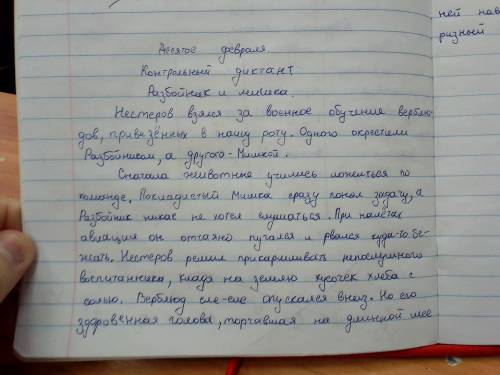 ней нав
ризный
Десятое февраля.
Контрольный диктант
Разбойник и мишка.
Нестеров взялся за военное обучение верблю-
дов, привезённых в нашу роту. Одного окрестили
Разбойником, а другого - Мишкой.
Сначала животные учились ложиться по
команде. Покладистый Мишка сразу понял задачу, а
Разбойник никак не хотел слушаться. При налётах
авиации он отчаяно пугался и рвался куда-то бе-
жать. Нестеров решил прикармливать непослушного
воспитанника, кладя на землю кусочек хлеба с
солью. Верблюд еле-еле опускался вниз. Но его
здоровенная голова, торчавшая на длинной шее